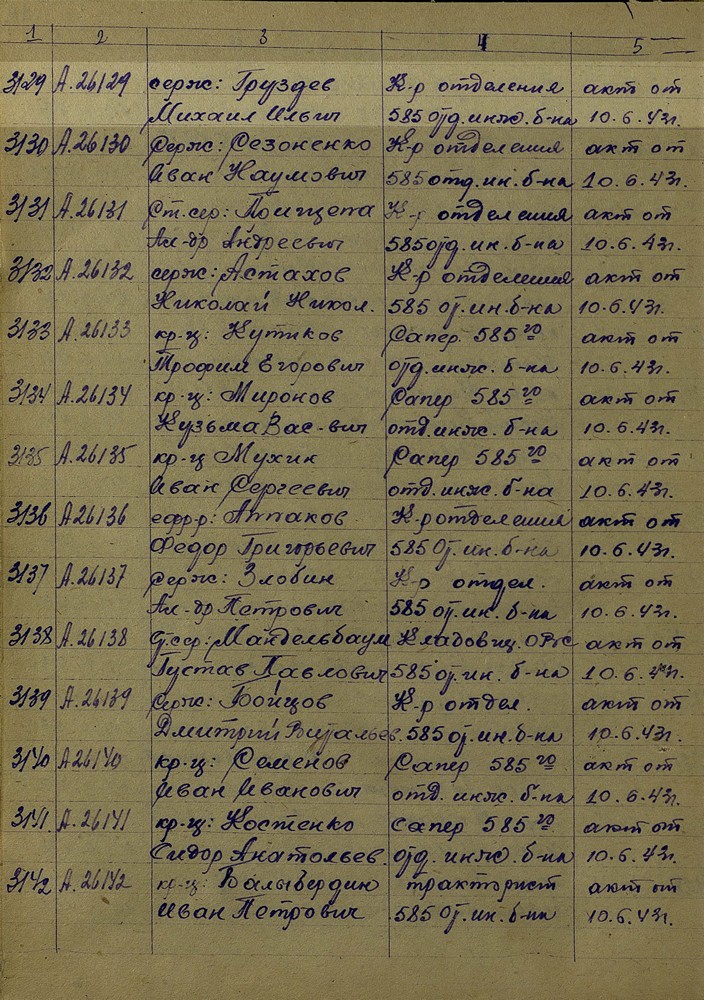 1 2 3 4 5
3129 А.26129 серж: Груздев К-р отделения акт от
Михаил Ильич 585 отд. инж. б-на 10.6.43г.
3130 А.26130 Серж: Сезоненко К-р отделения акт от
Иван Наумович 585 отд. ин. б-на 10.6.43г.
3131 А.26131 Ст. сер: К-р отделения акт от
Ал-др Андреевич 585 отд. ин. б-на 10.6.43г.
3132 А.26132 серж: Астахов К-р отделения акт от
Николай Никол. 585 от. ин. б-на 10.6.43г.
3133 А.26133 кр-ц: Кутиков Сапер 585го акт от
Трофим Егорович отд. инж. б-на 10.6.43г.
3134 А.26134 кр-ц: Миронов Сапер 585го акт от
Кузьма Вас-вич отд. инж. б-на 10.6.43г.
3135 А.26135 кр-ц Мухин Сапер 585го акт от
Иван Сергеевич отд. инж. б-на 10.6.43г.
3136 А26136 ефр-р: Аппаков К-р отделения акт от
Федор Григорьевич 585 от. ин. б-на 10.6.43г.
3137 А.26137 серж: Злобин К-р отдел. акт от
Ал-др Петрович 585 от. ин. б-на 10.6.43г.
3138 А.26138 Мандельбаум Кладовщ. акт от
Густав Павлович 585 от. ин. б-на 10.6.43г.
3139 А.26139 серж: Бойцов К-р отдел. акт от
Дмитрий Витальев. 585 от. ин. б-на 10.6.43г.
3140 А26140 кр-ц: Семенов Сапер 585го акт от
Иван Иванович отд. инж. б-на 10.6.43г.
3141. А.26141 кр-ц: Костенко Сапер 585го акт от
Сидор Анатольев. отд. инж. б-на 10.6.43г.
3142 А.26142 кр-ц: Балыбердин тракторист акт от
Иван Петрович 585 от. ин. б-на 10.6.43г.